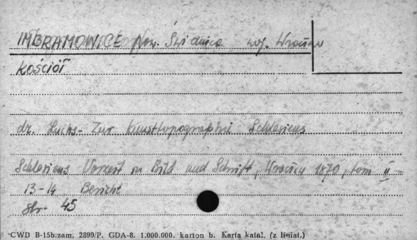 IMBRAMOWICE pow. Świdnica woj. Wrocław
KOŚCIÓŁ
dr. Luchs - Zur Kunsttopographie Schlesiens
Schlesiens Vorzeit in Bild und Schrift, Wrocław 1870, tom II
13-14 Bericht
str. 45
CWD B-15b. zam. 2399/P. GDA-8. 1.000.000. karton b. Karta katal. (z liniat.)